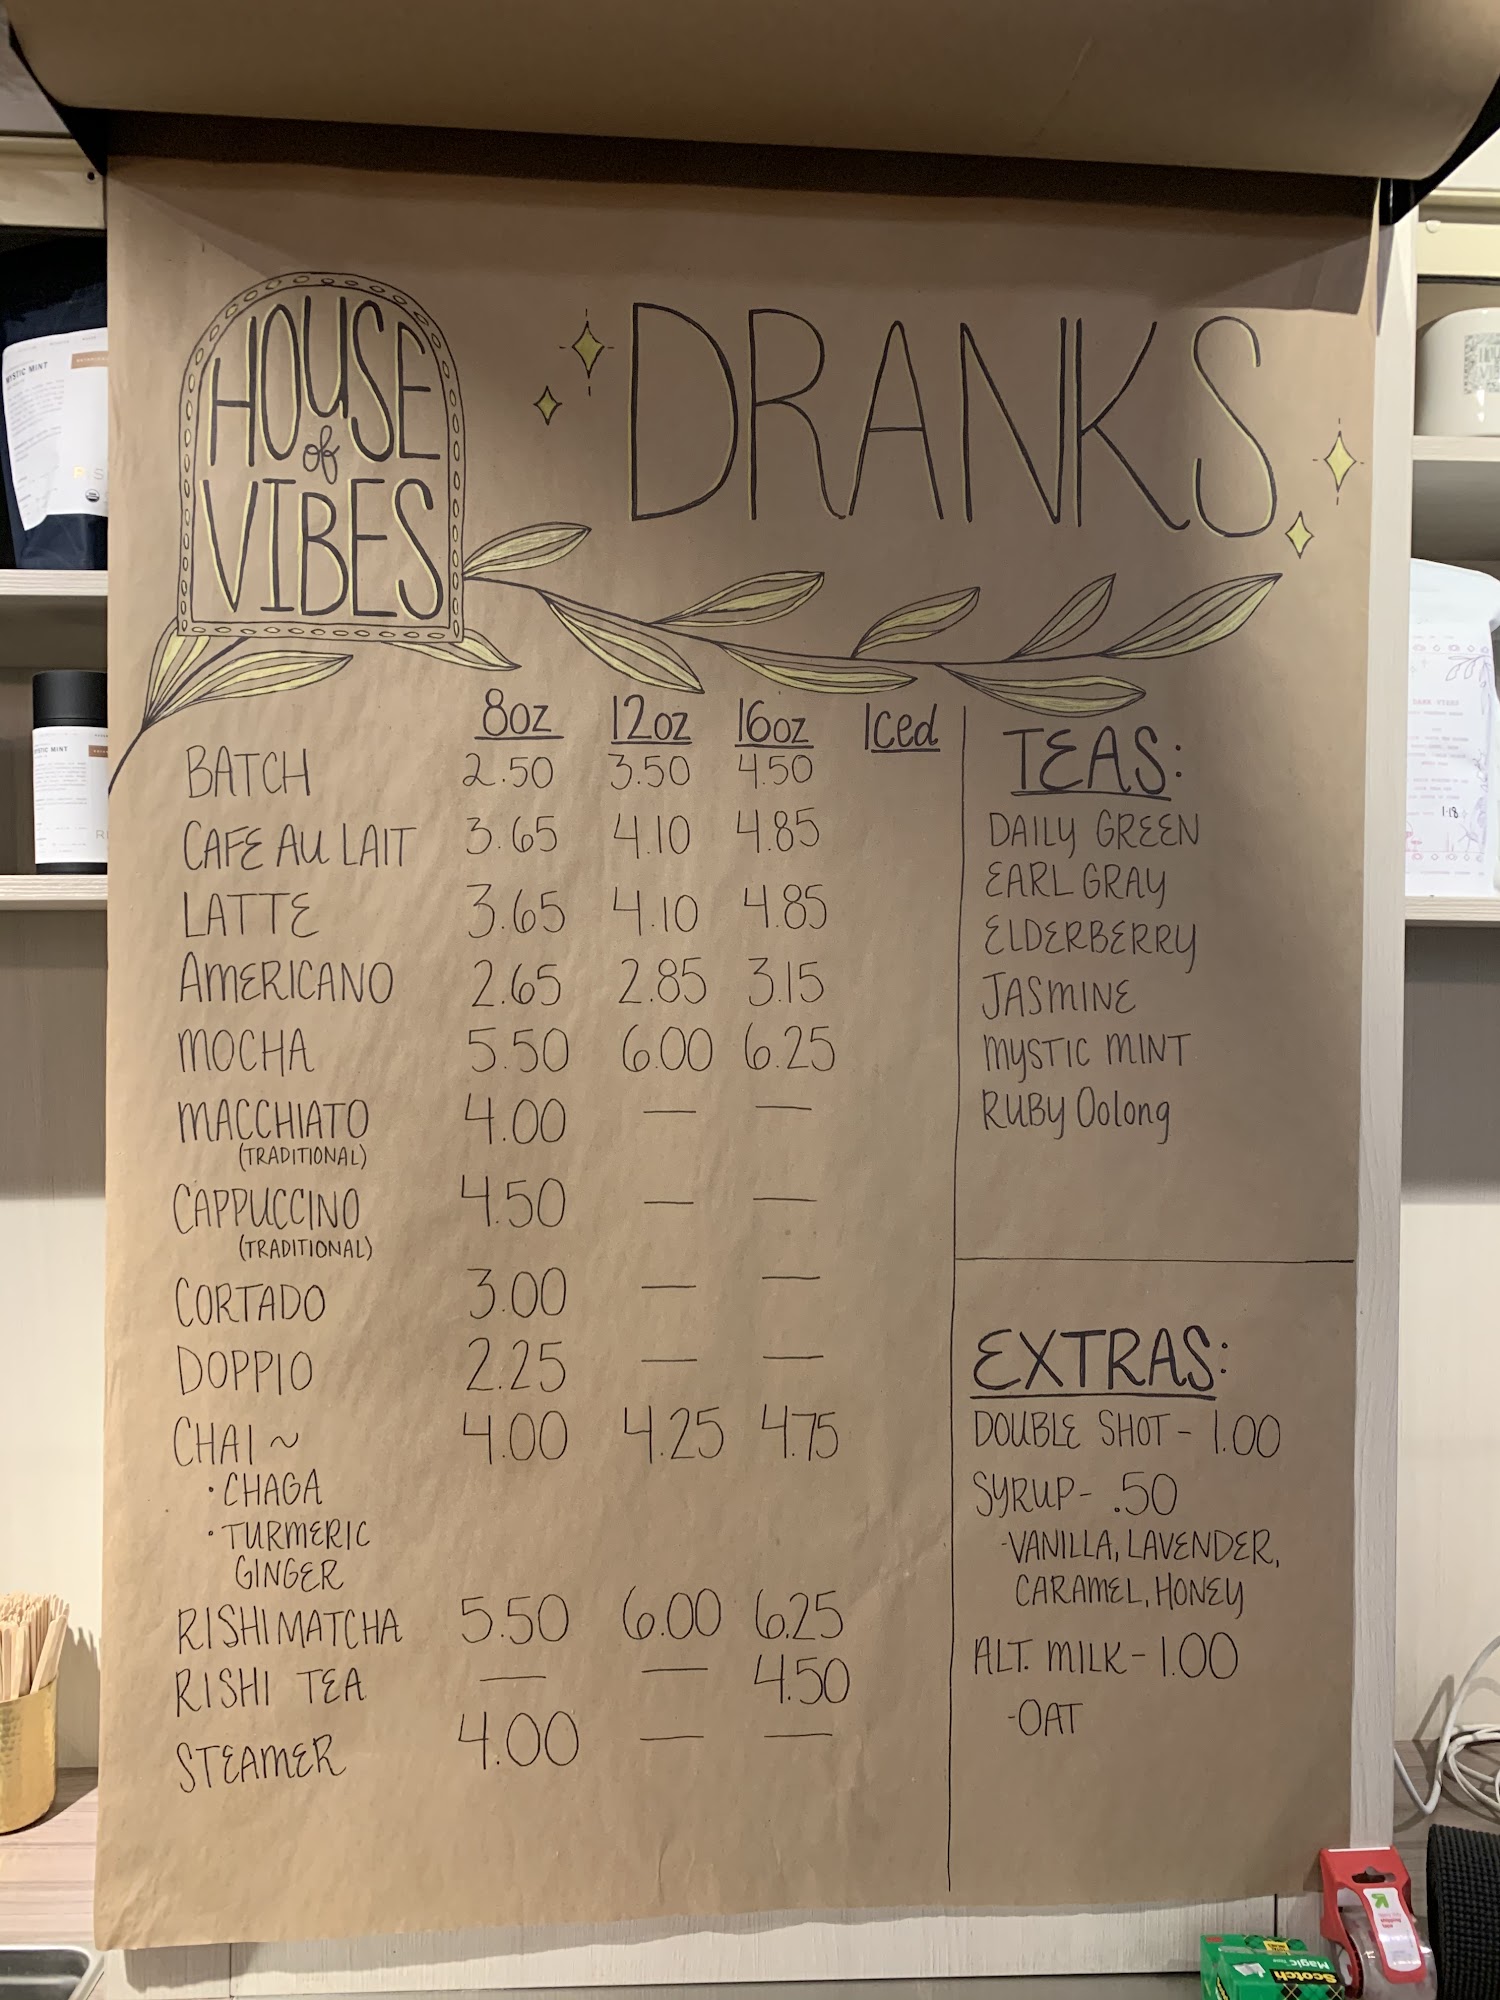 HOUSE
of
VIBES
DRANKS
8oz 12oz 16oz Iced
BATCH 2.50 3.50 4.50
CAFE AU LAIT 3.65 4.10 4.85
LATTE 3.65 4.10 4.85
AMERICANO 2.65 2.85 3.15
MOCHA 5.50 6.00 6.25
MACCHIATO 4.00 — —
(TRADITIONAL)
CAPPUCCINO 4.50 — —
(TRADITIONAL)
CORTADO 3.00 — —
DOPPIO 2.25 — —
CHAI ~ 4.00 4.25 4.75
• CHAGA
• TURMERIC
GINGER
RISHI MATCHA 5.50 6.00 6.25
RISHI TEA — — 4.50
STEAMER 4.00 — —
TEAS:
DAILY GREEN
EARL GRAY
ELDERBERRY
JASMINE
MYSTIC MINT
RUBY Oolong
EXTRAS:
DOUBLE SHOT - 1.00
SYRUP - .50
-VANILLA, LAVENDER,
CARAMEL, HONEY
ALT. MILK - 1.00
-OAT
MYSTIC MINT
MYSTIC MINT
1.18
Scotch
Magic